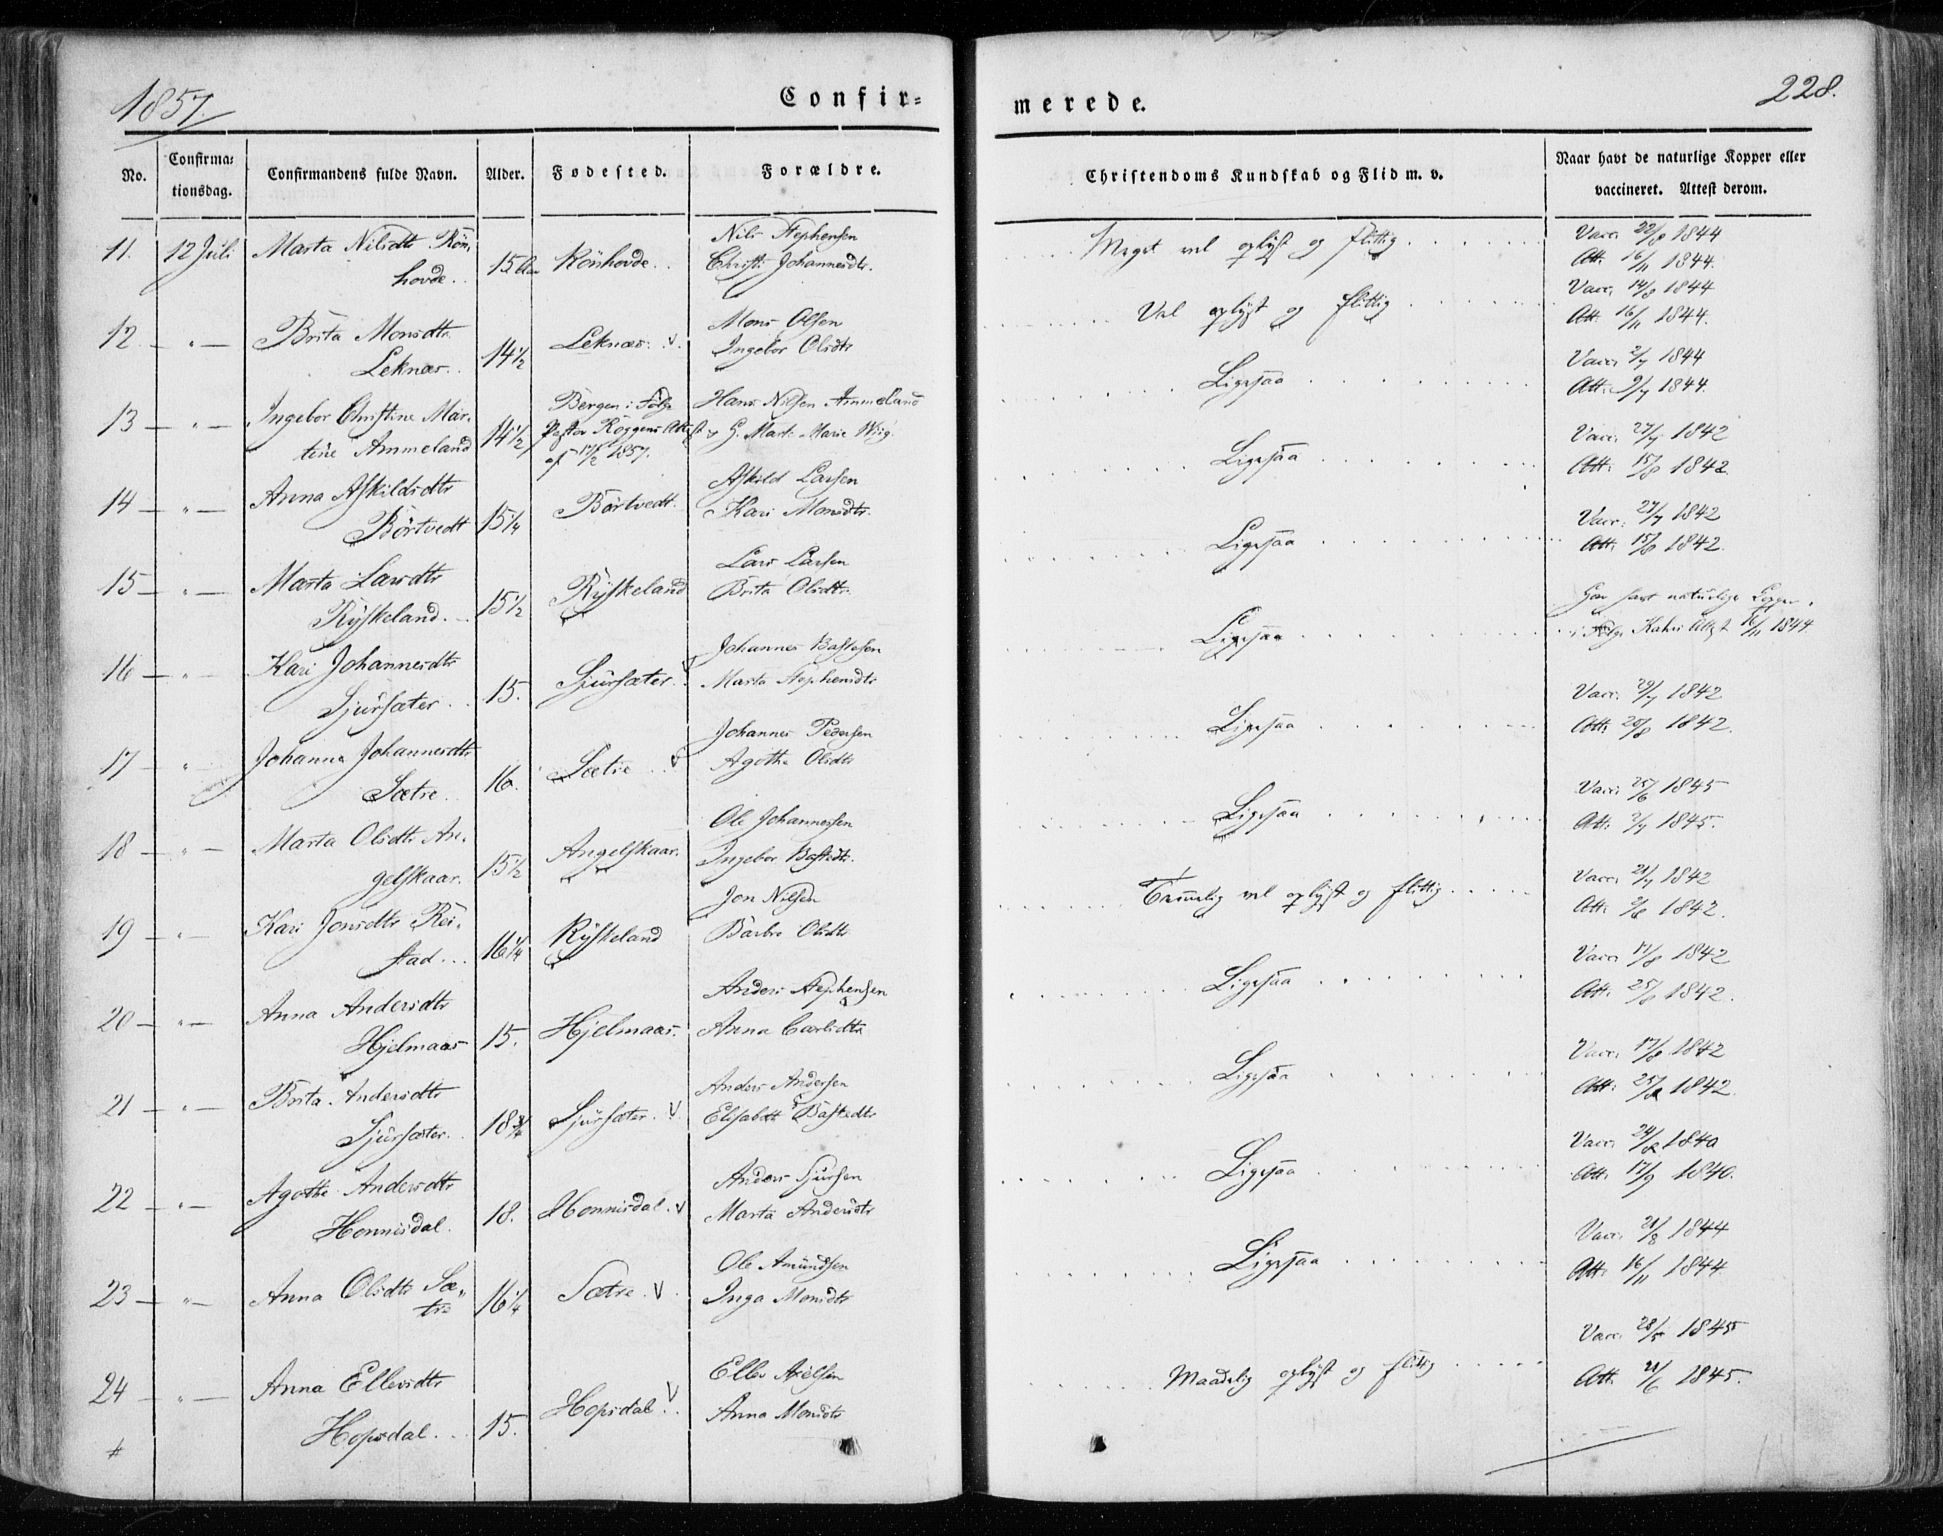 1857.
Confir=
merede.
228.
No.
Confirma=
tionsdag.
Confirmandens fulde Navn.
Alder.
Fødested.
Forældre.
Christendoms Kundskab og Flid m. v.
Naar havt de naturlige Kopper eller
vaccineret. Attest derom.
11. 12 Juli Marta Nilsdtr Rön-
hovde.. 15 Rönhovde..
Nils Stephensen
Christi Johannesdtr.
Meget vel oplyst og flittig
Vacc. 22/8 1844
Att. 16/11 1844.
12. — " — Brita Monsdtr
Leknæs.. 14 1/2 Leknæs. v.
Mons Olsen
Ingebor Olsdtr
Vel oplyst og flittig
Vacc. 14/8 1844
Att. 16/11 1844.
13 — " — Ingebor Christine Mar-
tine Ammeland 14 1/2
Bergen i Følge
Pastor Attest
af 1857.
Hans Nilsen Ammeland
G. Mart: Marie Wiig.
Ligesaa
Vacc. 2/7 1844
Att. 9/7 1844.
14 — " — Anna Askildsdtr
Börtvedt 15 1/4 Börtvedt.
Askild Larsen
Kari Monsdtr.
Ligesaa
Vacc. 27/7 1842
Att. 15/8 1842.
15 — " — Marta Larsdtr
Ryskeland. 15 1/2 Ryskeland
Lars Larsen
Brita Olsdtr.
Ligesaa
Vacc. 27/7 1842
Att. 15/8 1842.
16 — " — Kari Johannesdtr
Sjursæter.. 15. Sjursæter. v
Johannes Bastesen
Marta Stephensdtr
Ligesaa
havt naturlige Kopper
i Følge Attest 16/11 1844.
17 — " — Johanna Johannesdtr
Sætre. 16. Sætre.. v
Johannes Pedersen
Agotha Olsdtr
Ligesaa
Vacc. 29/7 1842
Att. 20/8 1842.
18 — " — Marta Olsdtr An-
gelskaar. 15 1/2 Angelskaar.
Ole Johannessen
Ingebor Bastedtr.
Ligesaa
Vacc. 25/6 1845
Att. 2/7 1845.
19 — " — Kari Jonsdtr Rei-
stad... 16 1/4 Ryskeland
Jon Nilsen
Barbro Olsdtr
Temmelig vel oplyst og flittig
Vacc. 21/7 1842
Att. 1842.
20 — " — Anna Andersdtr
Hjelmaas 15. Hjelmaas.
Anders Stephensen
Anna Carlsdtr
Ligesaa
Vacc. 17/8 1842
Att. 25/8 1842.
21 — " — Brita Andersdtr
Sjursæter. 18 3/4 Sjursæter. V
Anders Andersen
Elisabeth Bastedtr
Ligesaa
Vacc. 17/8 1842
Att. 25/8 1842.
22 — " — Agothe Andersdtr
Honnisdal. 18. Honnisdal. v
Anders Sjursen
Marta Andersdtr
Ligesaa
Vacc. 24/8 1840
Att. 17/9 1840.
23 — " — Anna Olsdtr Sæ-
tre 16 1/4 Sætre. V.
Ole Amundsen
Inga Monsdtr
Ligesaa
Vacc. 21/8 1844
Att. 16/11 1844.
24 — " — Anna Ellevsdtr
Hopsdal... 15. Hopsdal. V
Ellev Nielsen
Anna Monsdtr
Maadelig oplyst og flittig
Vacc. 28/5 1845
Att. 1845.